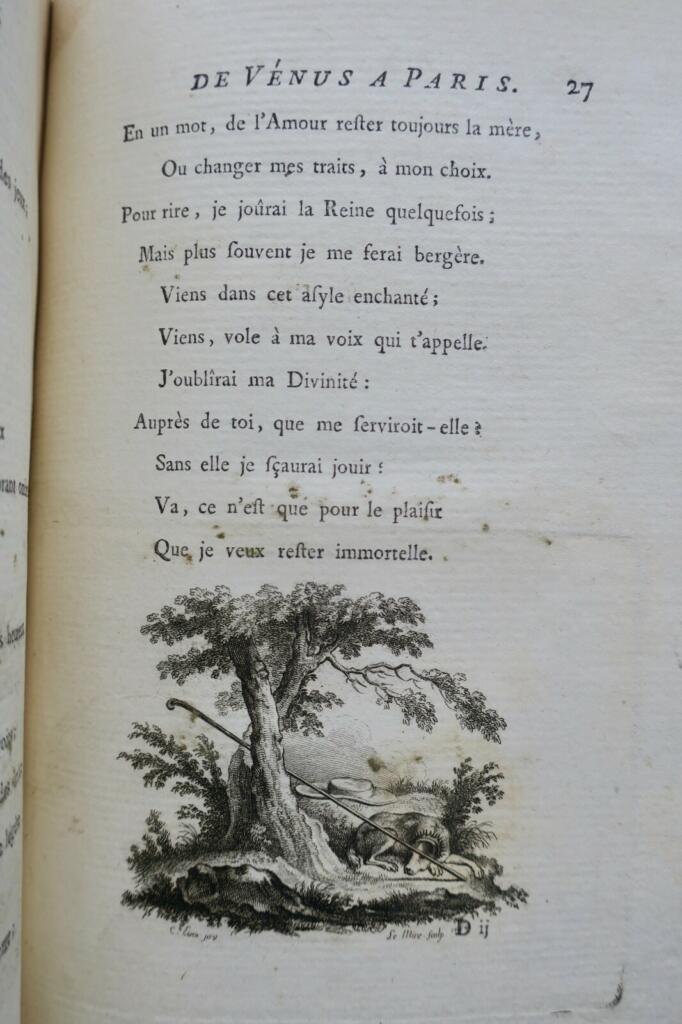 DE VÉNUS A PARIS. 27
En un mot, de l'Amour reſter toujours la mère,
Ou changer mes traits, à mon choix.
Pour rire, je joûrai la Reine quelquefois;
Mais plus ſouvent je me ferai bergère.
Viens dans cet aſyle enchanté;
Viens, vole à ma voix qui t'appelle.
J'oublîrai ma Divinité:
Auprès de toi, que me ſerviroit-elle?
Sans elle je ſçaurai jouir:
Va, ce n'eſt que pour le plaiſir
Que je veux reſter immortelle.
Le Mire ſculp
D ij